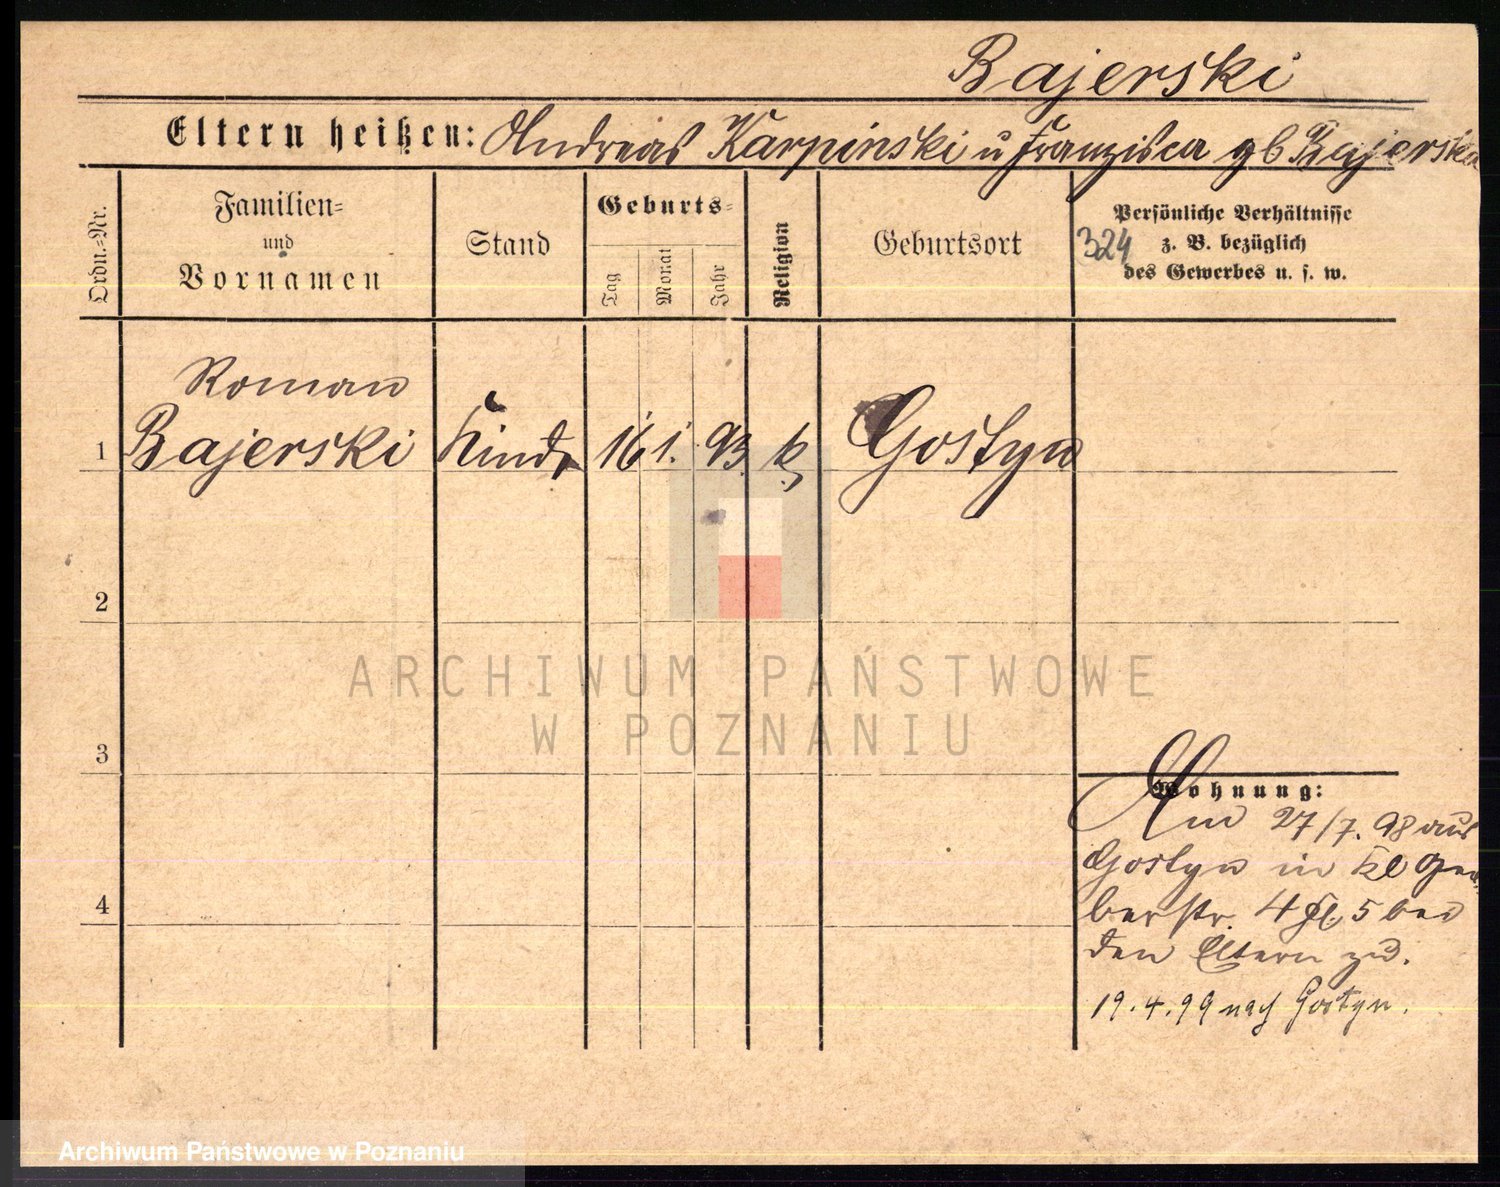 Bajerski
Eltern heißen: Andreas Karpinski u Franzisca gb Bajerska
Ordn.-Nr.
Familien-
und
Vornamen
Stand
Geburts-
Tag
Monat
Jahr
Religion
Geburtsort
Persönliche Verhältnisse
z. B. bezüglich
des Gewerbes u. s. w.
324
Roman
1 Bajerski Kind 16 1. 93. k Gostyn
2
3
4
ARCHIWUM PAŃSTWOWE
W POZNANIU
Wohnung:
Am 27/7. 98 aus
Gostyn in Kl Ger
berstr. 4 5 bei
den Eltern zu.
19.4.99 nach Gostyn.
Archiwum Państwowe w Poznaniu